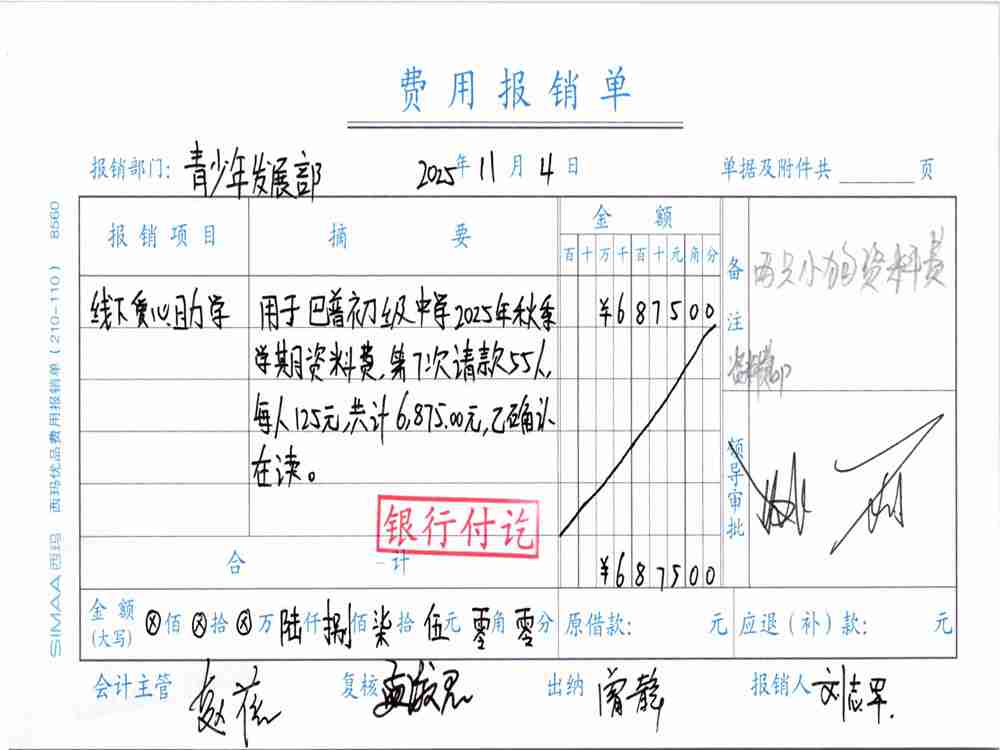 费用报销单
报销部门: 青少年发展部 2025年11月4日 单据及附件共 页
报销项目 摘要 金额 备注
百十万千百十元角分
两只小狗资料费
线下爱心助学 用于巴普初级中学2025年秋季 ¥687500
学期资料费,第7次请款55人,
每人125元,共计6,875.00元,已确认
在读。
资料费
领导审批
银行付讫
合计 ¥687500
金额(大写) ⊗佰⊗拾⊗万陆仟捌佰柒拾伍元零角零分 原借款: 元 应退(补)款: 元
会计主管 复核 出纳 曾静 报销人 刘志军
SIMAA 西玛 西玛优品费用报销单(210-110) 8560